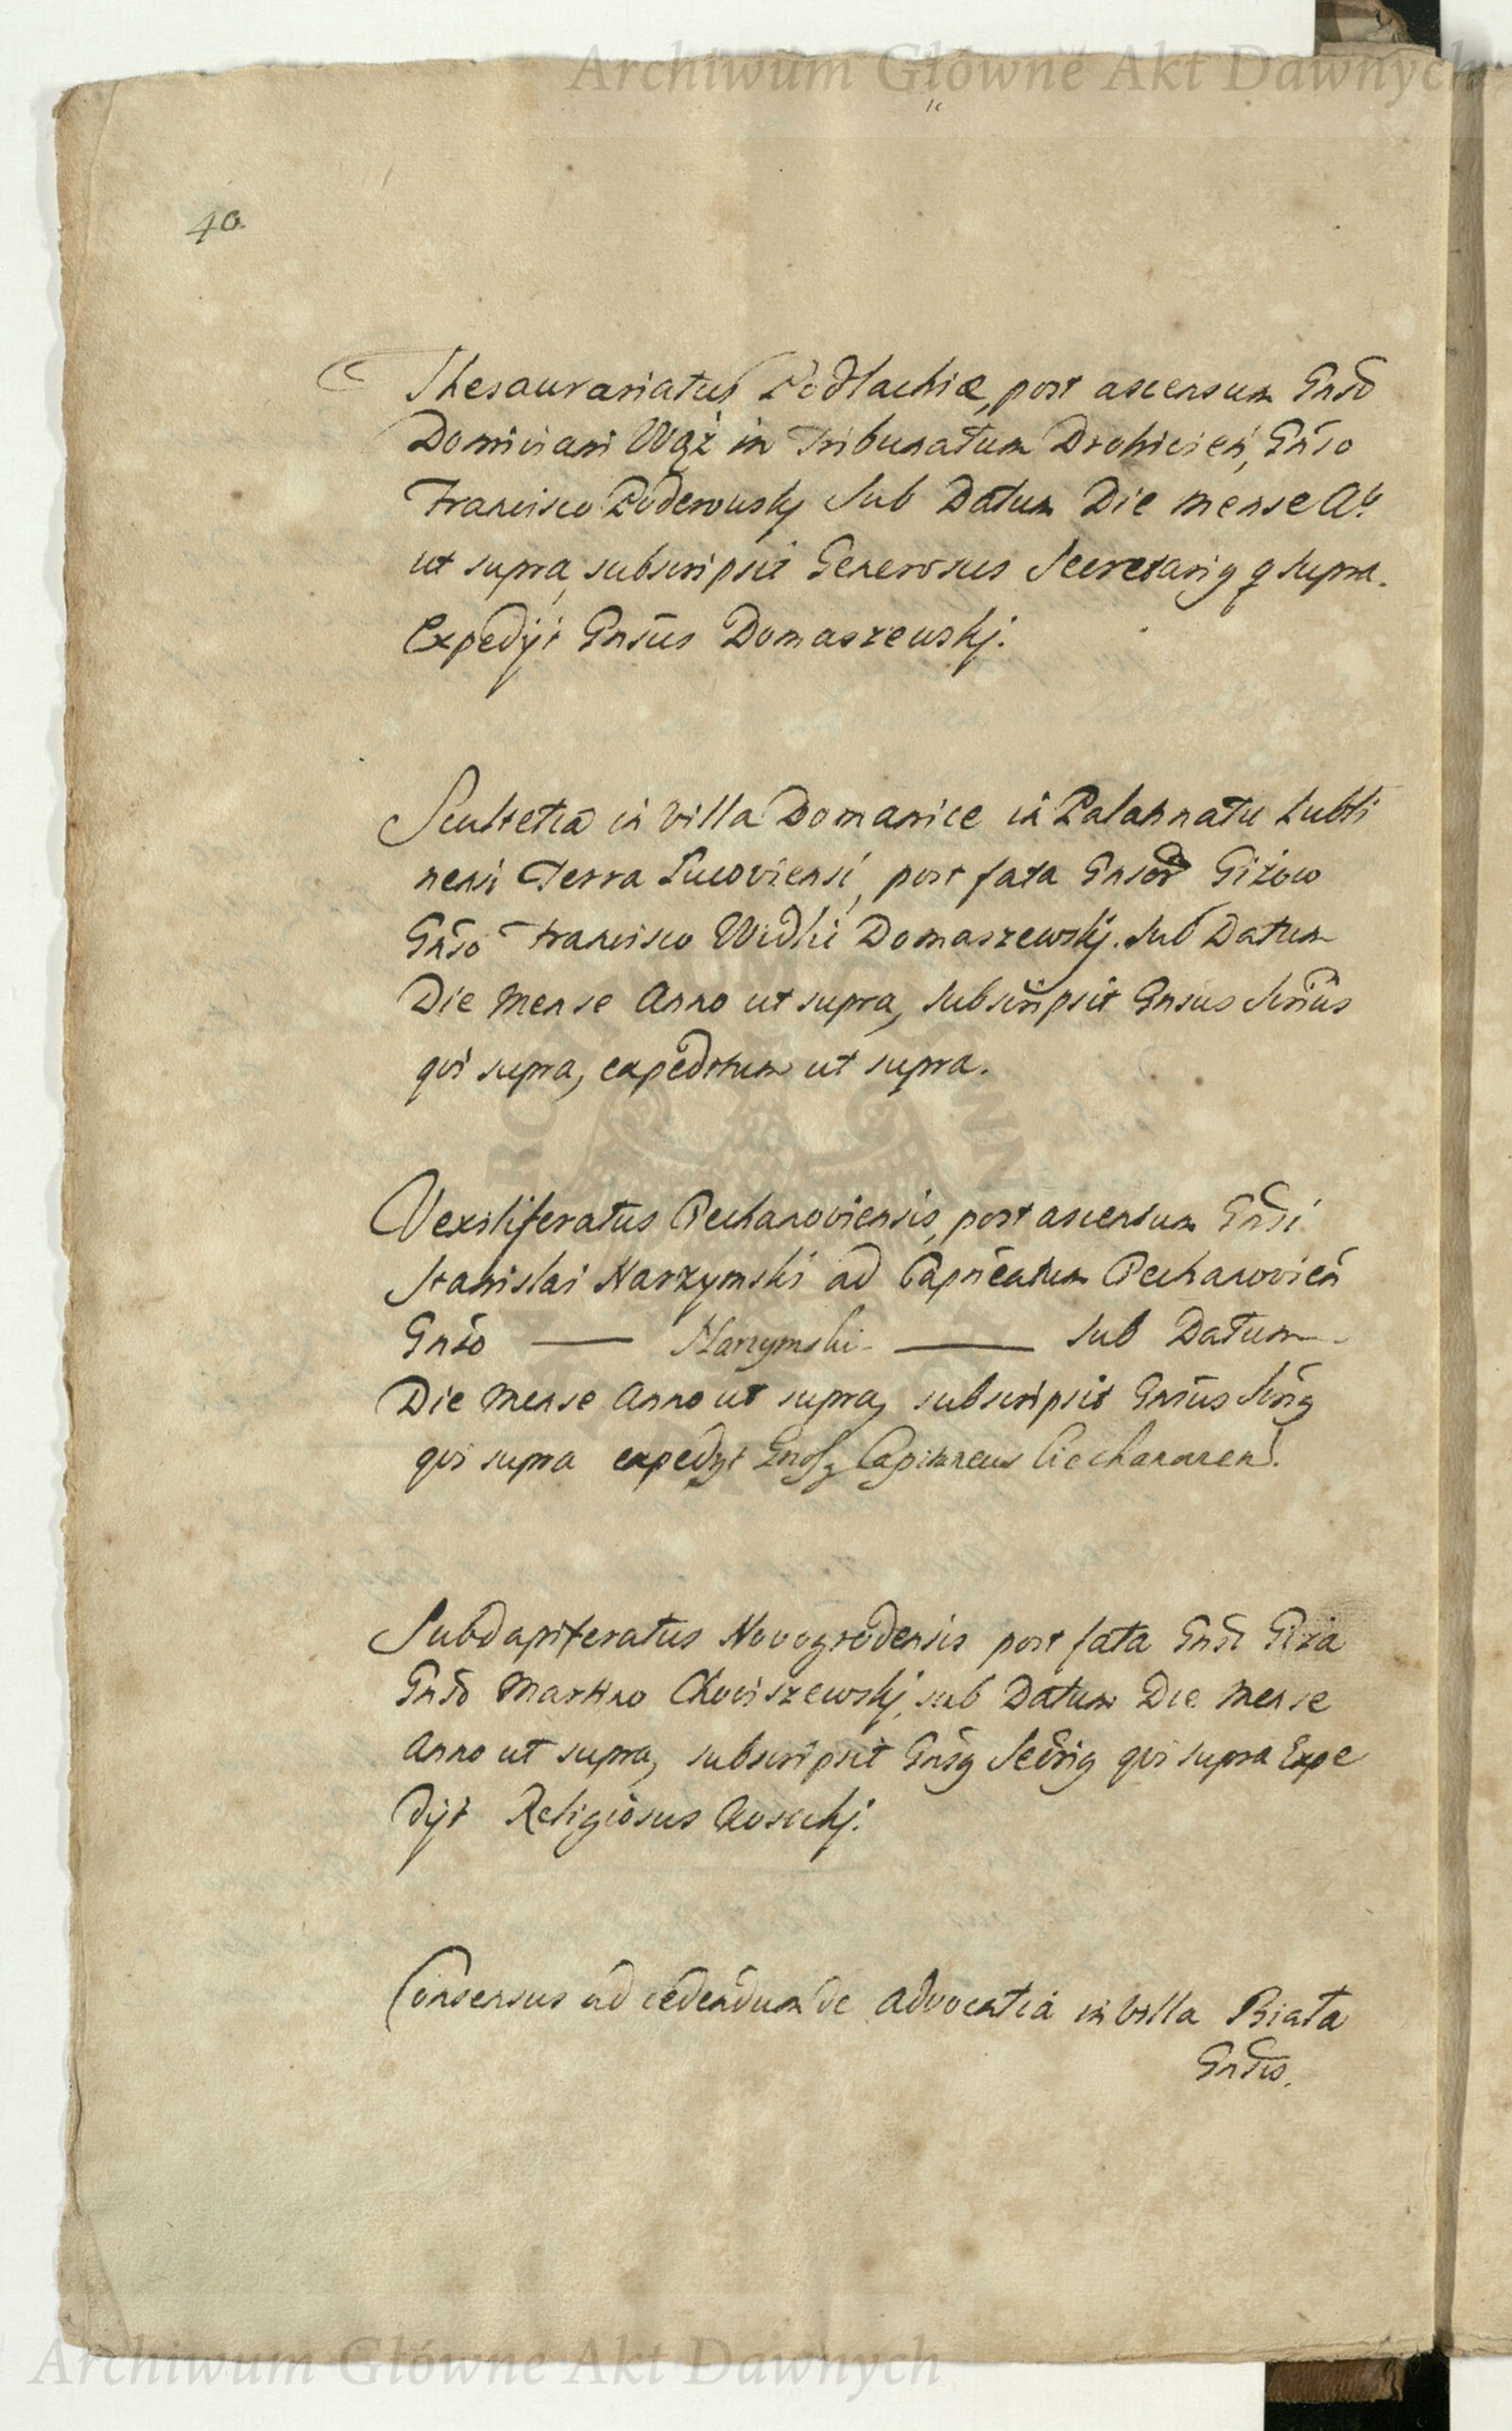 Archiwum Główne Akt Dawnych
40.
Thesaurariatus Podlachiæ, post ascensum Gnso
Domiciani Wąż in Tribunatum Drohicień, Gnso
Francisco Puderowskj Sub Datum Die mense Aº
ut supra, subscripsit Generosus Secretarig q supra.
Expedÿt Gnsus Domaszewskj.
Scultetia in Villa Domanice in Palatinatu Lubli
nensi Terra Lucoviensi, post fata Gnsor Giżow
Gnso Francisco Domaszewskj. Sub Datum
Die Mense Anno ut supra, subscripsit Gnsus Srius
qui supra, expeditum ut supra.
Vexiliferatus Ciechanoviensis, post ascensum Gnsi
Stanislai Narzymski ad Capneatum Ciechanovień
Gnso — Narzymski — sub Datum
Die Mense Anno ut supra, subscripsit Gnsus Srig
qui supra expedyt Gnosg Capitaneus Ciechanoven.
Subdapiferatus Novogrodensis post fata Gnsi Giża
Gnso Martino Choiszewskj, sub Datum Die Mense
Anno ut supra, subscripsit Gnsg Secrig qui supra Expe
dÿt Religiosus
Consensus ad cedendum de advocatia in villa Biała
Gnsis.
Archiwum Główne Akt Dawnych